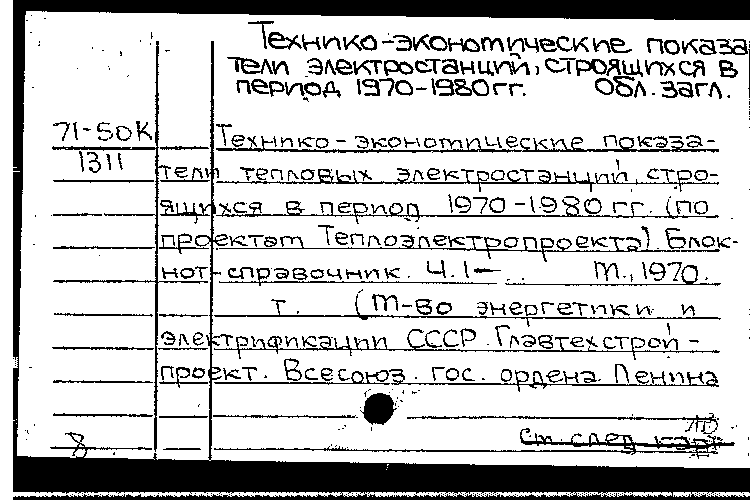 Технико-экономические показа
тели электростанций, строящихся в
период 1970-1980гг. Обл. загл.
71-50К
1311
Технико-экономические показа-
тели тепловых электростанций, стро-
ящихся в период 1970-1980 гг. (по
проектам Теплоэлектропроекта). Блок-
нот-справочник. Ч.1— .. М., 1970.
т. (М-во энергетики и
электрификации СССР. Главтехстрой-
проект. Всесоюз. гос. ордена Ленина
См. след. карт.
8